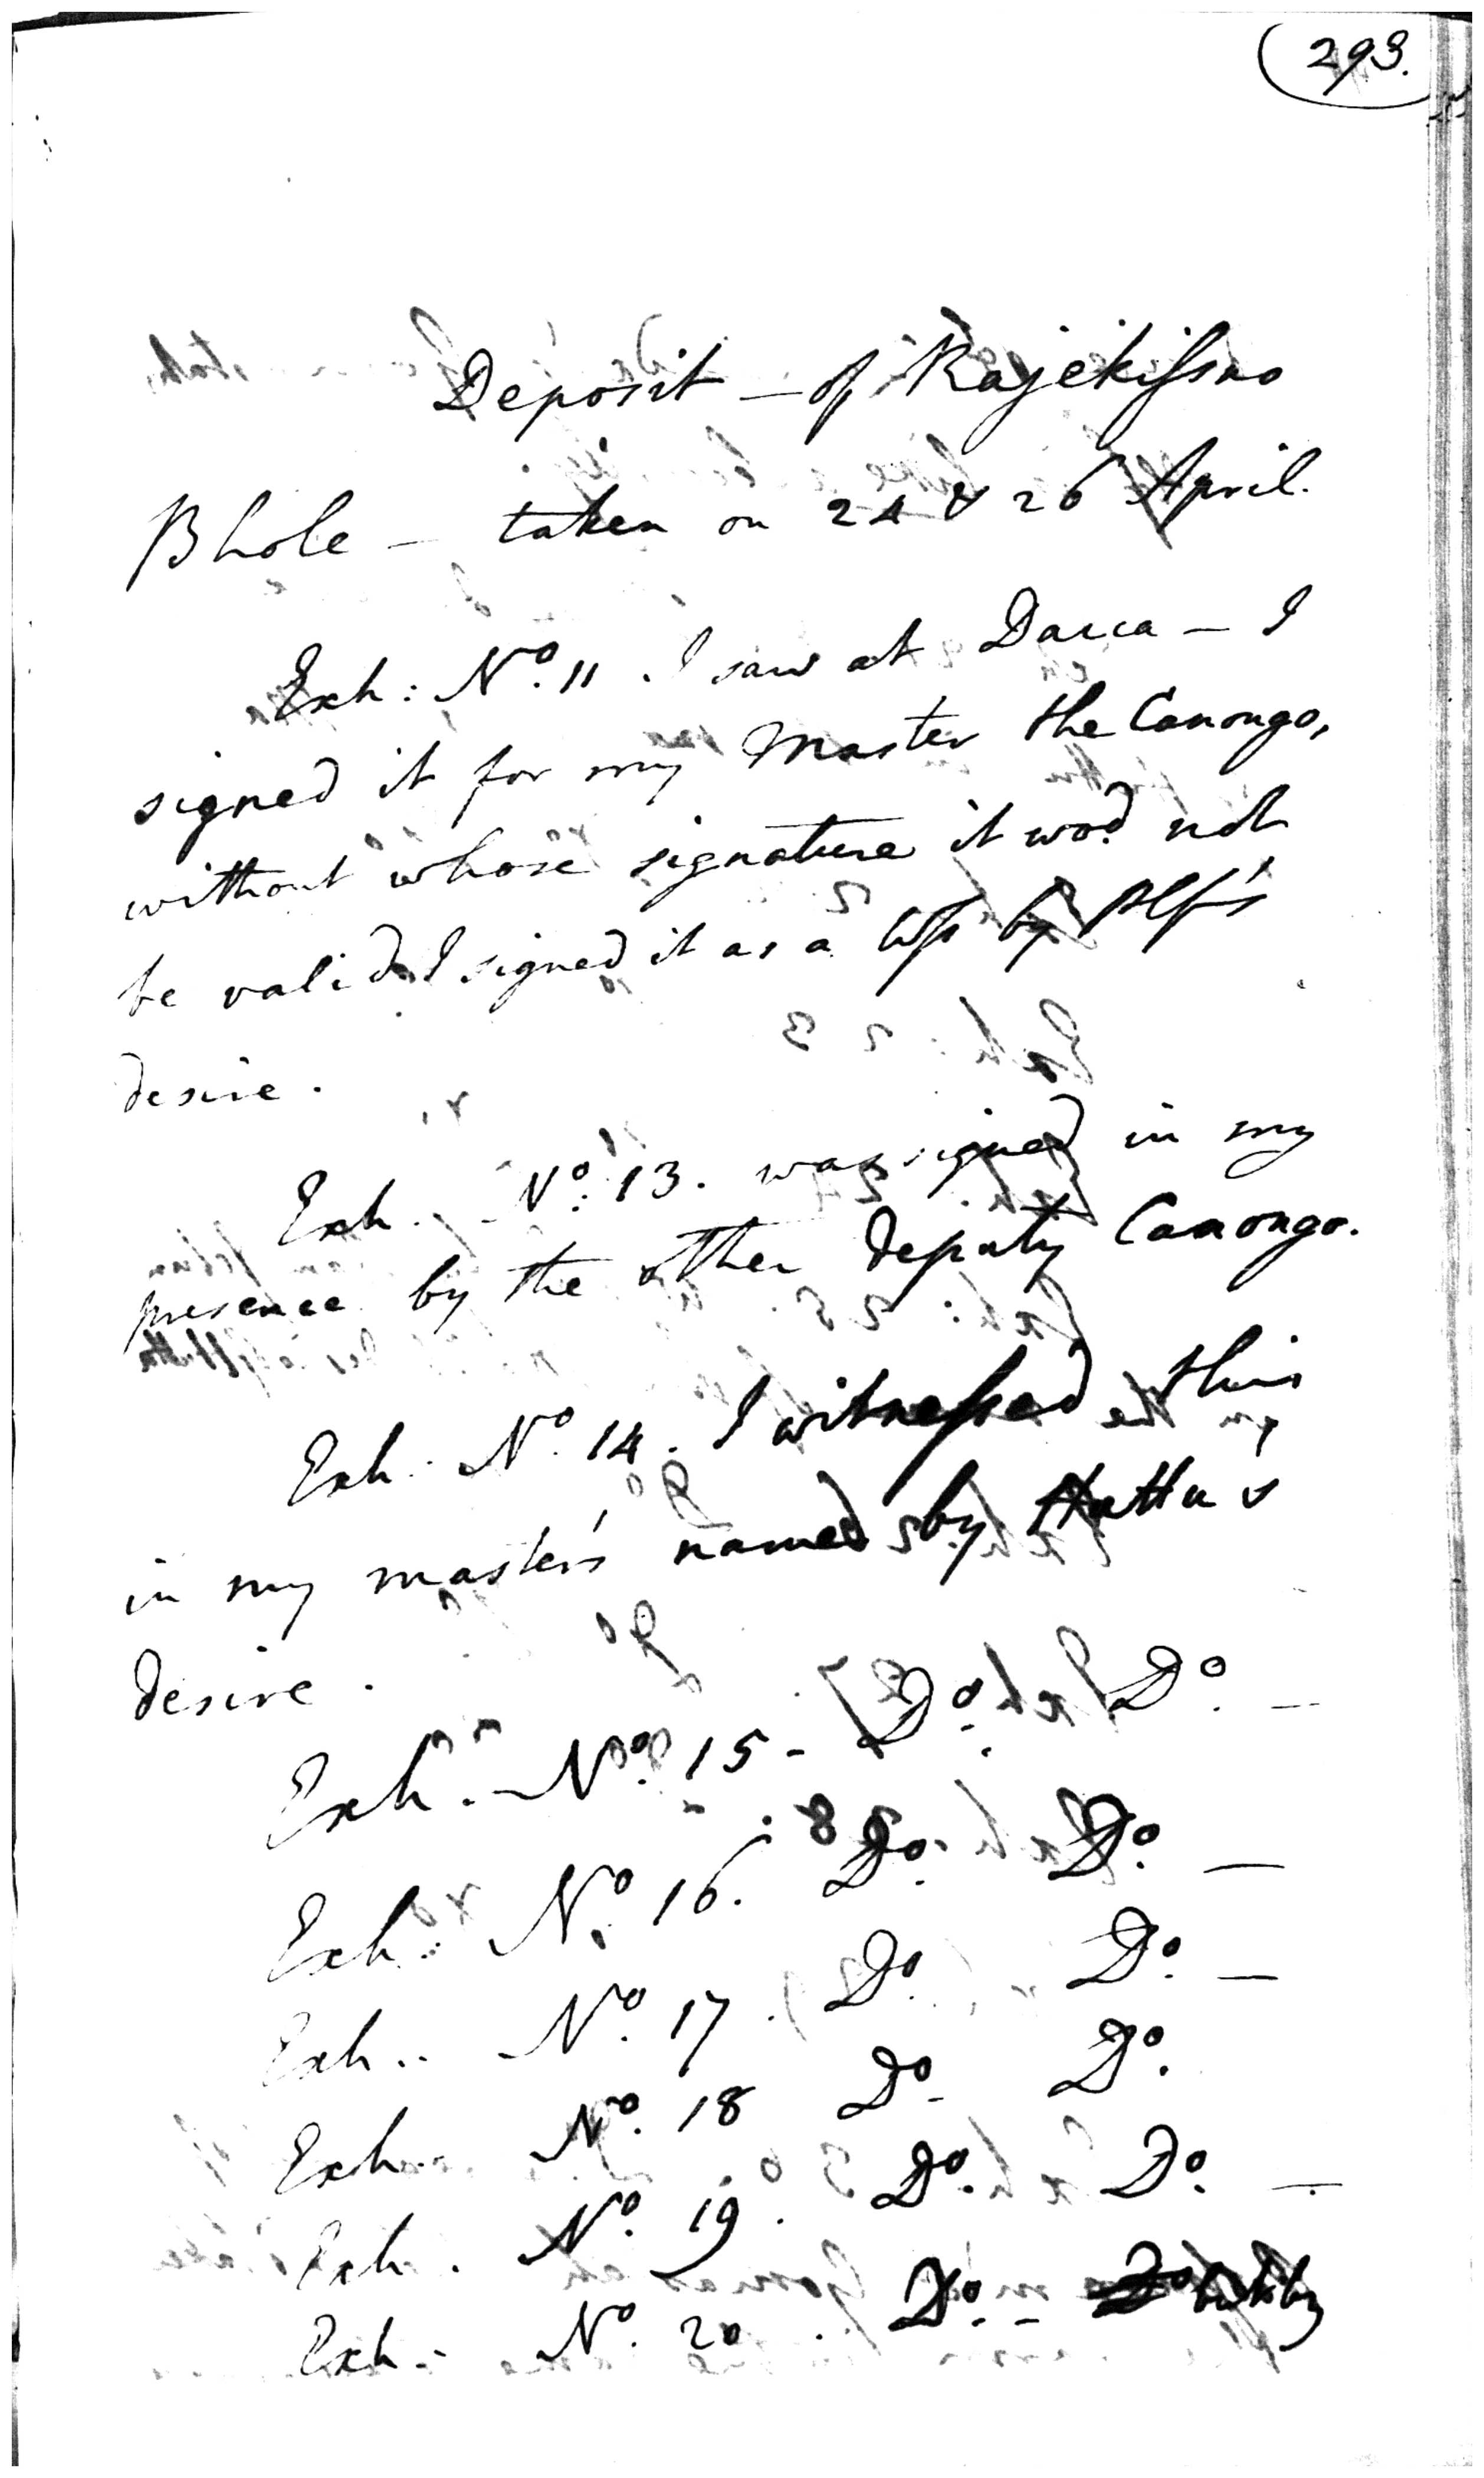 293.
Deposit - of Rajekissno
Bhole - taken on 24 & 26 April.
Exh: No. 11 . I saw at Dacca - I
signed it for my Master the Canongo,
without whose signature it wod. not
be valid. I signed it as a Wss by Plf's
desire.
Exh. No. 13. was signed in my
presence by the other deputy Canongo.
Exh. No. 14. I witnessed this
in my master's named by
desire.
Exh. - No. 15 - Do. Do. -
Exh. No. 16. Do. Do. -
Exh. No. 17. Do. Do. -
Exh. No. 18 Do. Do.
Exh. No. 19. Do. Do. -
Exh. No. 20. Do. - Do but by